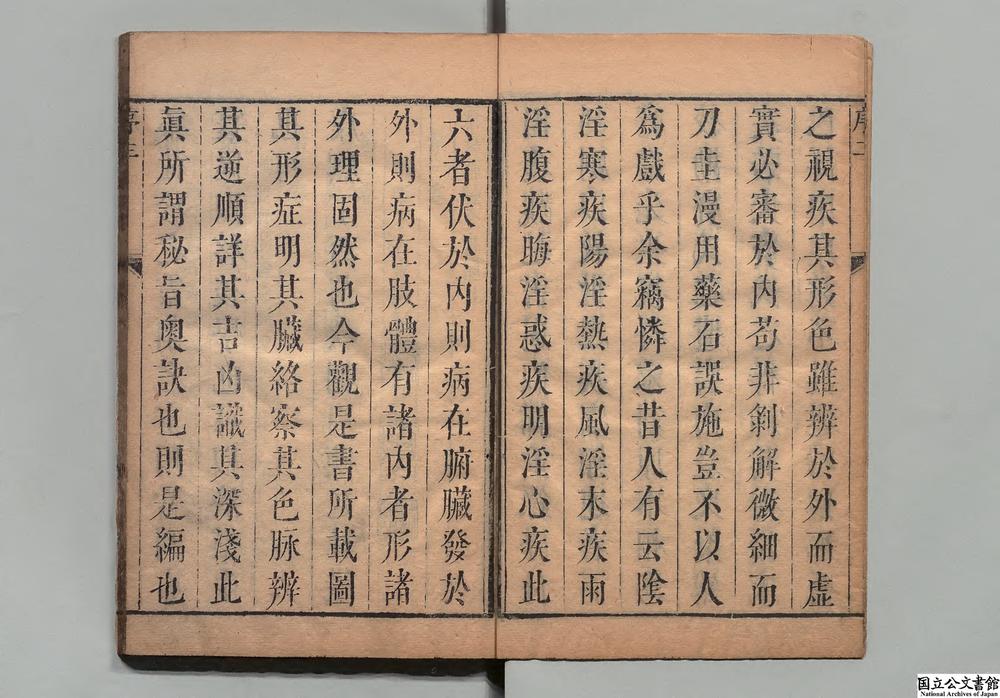 序二
之視疾其形色雖辨於外而虛
實必審於內苟非剖解微細而
刀圭漫用藥石誤施豈不以人
爲戲乎余竊憐之昔人有云陰
淫寒疾陽淫熱疾風淫末疾雨
淫腹疾晦淫惑疾明淫心疾此
六者伏於內則病在腑臟發於
外則病在肢體有諸內者形諸
外理固然也今觀是書所載圖
其形症明其臟絡察其色脉辨
其逆順詳其吉凶識其深淺此
眞所謂秘旨奥訣也則是編也
序三
国立公文書館
National Archives of Japan